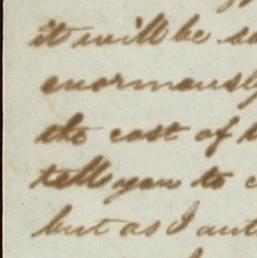 it will be
enormously
the cost of
tell you to
but as I